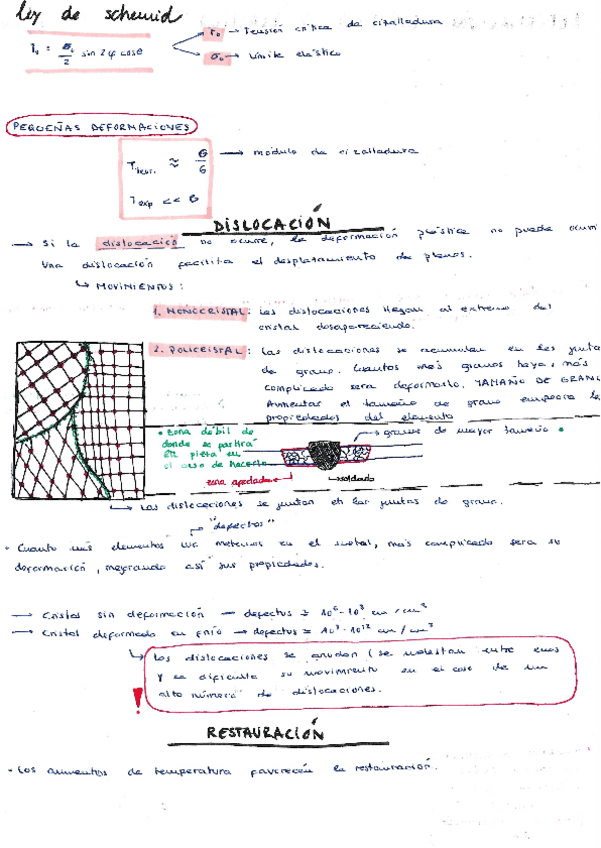 ley de schemid
τ₀ = σ₀/2 sin 2φ cosθ
τ₀ → Tensión crítica de cizalladura
σ₀ → límite elástico
PEQUEÑAS DEFORMACIONES
τ teor. ≈ G/6 → módulo de cizalladura
τ exp << G
DISLOCACIÓN
→ Si la dislocación no ocurre, la deformación plástica no puede ocurrir
Una dislocación facilita el desplazamiento de planos.
↳ MOVIMIENTOS:
1. MONOCRISTAL: Las dislocaciones llegan al extremo del
cristal desapareciendo.
2. POLICRISTAL: Las dislocaciones se acumulan en las juntas
de grano. Cuantos más granos haya, más
complicado será deformarlo. TAMAÑO DE GRANO
Aumentar el tamaño de grano empeora las
propiedades del elemento
• zona débil de
donde se partirá
la pieza en
el caso de hacerlo
→ granos de mayor tamaño •
zona afectada
→ soldado
↳ Las dislocaciones se juntan en las juntas de grano.
"defectos"
• Cuanto más elementos metemos en el metal, más complicado será su
deformación, mejorando así sus propiedades.
→ Cristal sin deformación → defectos ≃ 10⁶-10⁸ cm/cm³
→ Cristal deformado en frío → defectos ≃ 10⁹-10¹² cm/cm³
↳ Las dislocaciones se anudan (se molestan entre ellas
y se dificulta su movimiento en el caso de un
alto número de dislocaciones.
!
RESTAURACIÓN
• Los aumentos de temperatura favorecen la restauración.